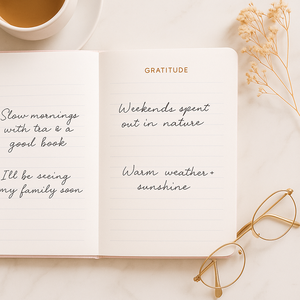 Slow mornings
with tea & a
good book
I'll be seeing
my family soon
GRATITUDE
Weekends spent
out in nature
Warm weather +
sunshine